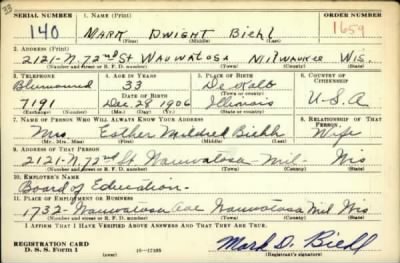 33
SERIAL NUMBER 1. NAME (Print) ORDER NUMBER
140 MARK DWIGHT Biehl 1659
(First) (Middle) (Last)
2. ADDRESS (Print)
2121-N. 72nd St WAUWATOSA MILWAUKEE WIS.
(Number and street or R. F. D. number) (Town) (County) (State)
3. TELEPHONE 4. AGE IN YEARS 5. PLACE OF BIRTH 6. COUNTRY OF CITIZENSHIP
Bluemound 33 De Kalb
DATE OF BIRTH (Town or county)
7191 Dec 28 1906 Illinois U-S-A
(Exchange) (Number) (Mo.) (Day) (Yr.) (State or country)
7. NAME OF PERSON WHO WILL ALWAYS KNOW YOUR ADDRESS 8. RELATIONSHIP OF THAT PERSON
Mrs. Esther Mildred Biehl Wife
(Mr., Mrs., Miss) (First) (Middle) (Last)
9. ADDRESS OF THAT PERSON
2121-N. 72nd St Wauwatosa - Mil- Wis
(Number and street or R. F. D. number) (Town) (County) (State)
10. EMPLOYER'S NAME
Board of Education-
11. PLACE OF EMPLOYMENT OR BUSINESS
1732- Wauwatosa Ave Wauwatosa Mil Wis
(Number and street or R. F. D. number) (Town) (County) (State)
I AFFIRM THAT I HAVE VERIFIED ABOVE ANSWERS AND THAT THEY ARE TRUE.
REGISTRATION CARD
D. S. S. Form 1 (over) 16-17105 Mark D. Biehl
(Registrant's signature)